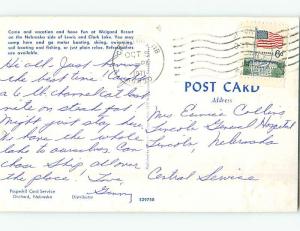 Come and vacation and have fun at Weigand Resort
on the Nebraska side of Lewis and Clark Lake. You may
camp here and go motor boating, skiing, swimming,
sail boating and fishing, or just plain relax. Refreshments
are available.
OCT 5
PM
1971
6¢
Hi all. Just having
the best time! Caught
a 6 lb channel cat but
on
Might just stay here
We have the whole
lake to ourselves. Can
chase Skip all over
the place! Love
Ginny
POST CARD
Address
Mrs Eunice Collins
Lincoln General Hospital
Lincoln, Nebraska
Central Service
Popehill Card Service
Orchard, Nebraska
Distributor
S29758